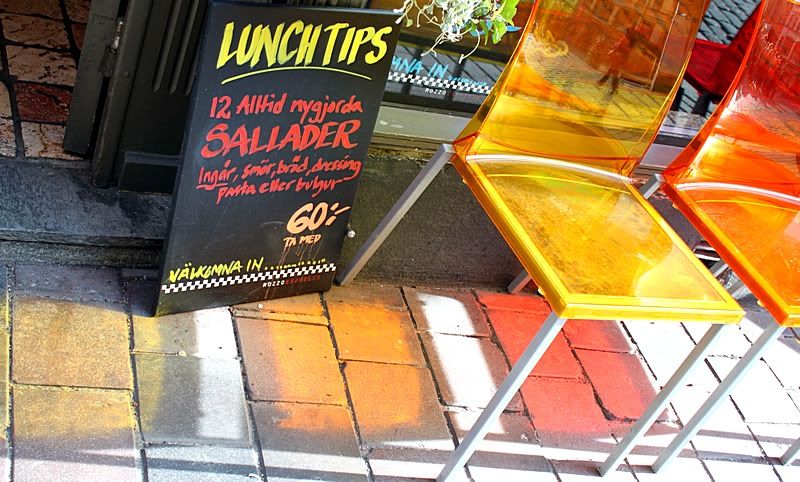 LUNCHTIPS
12 Alltid nygjorda
SALLADER
Ingår, smör, bröd, dressing
pasta eller bulgur
60:-
TA MED
VÄLKOMNA IN
ROZZOESPRESSO
MNA IN
ROZZO